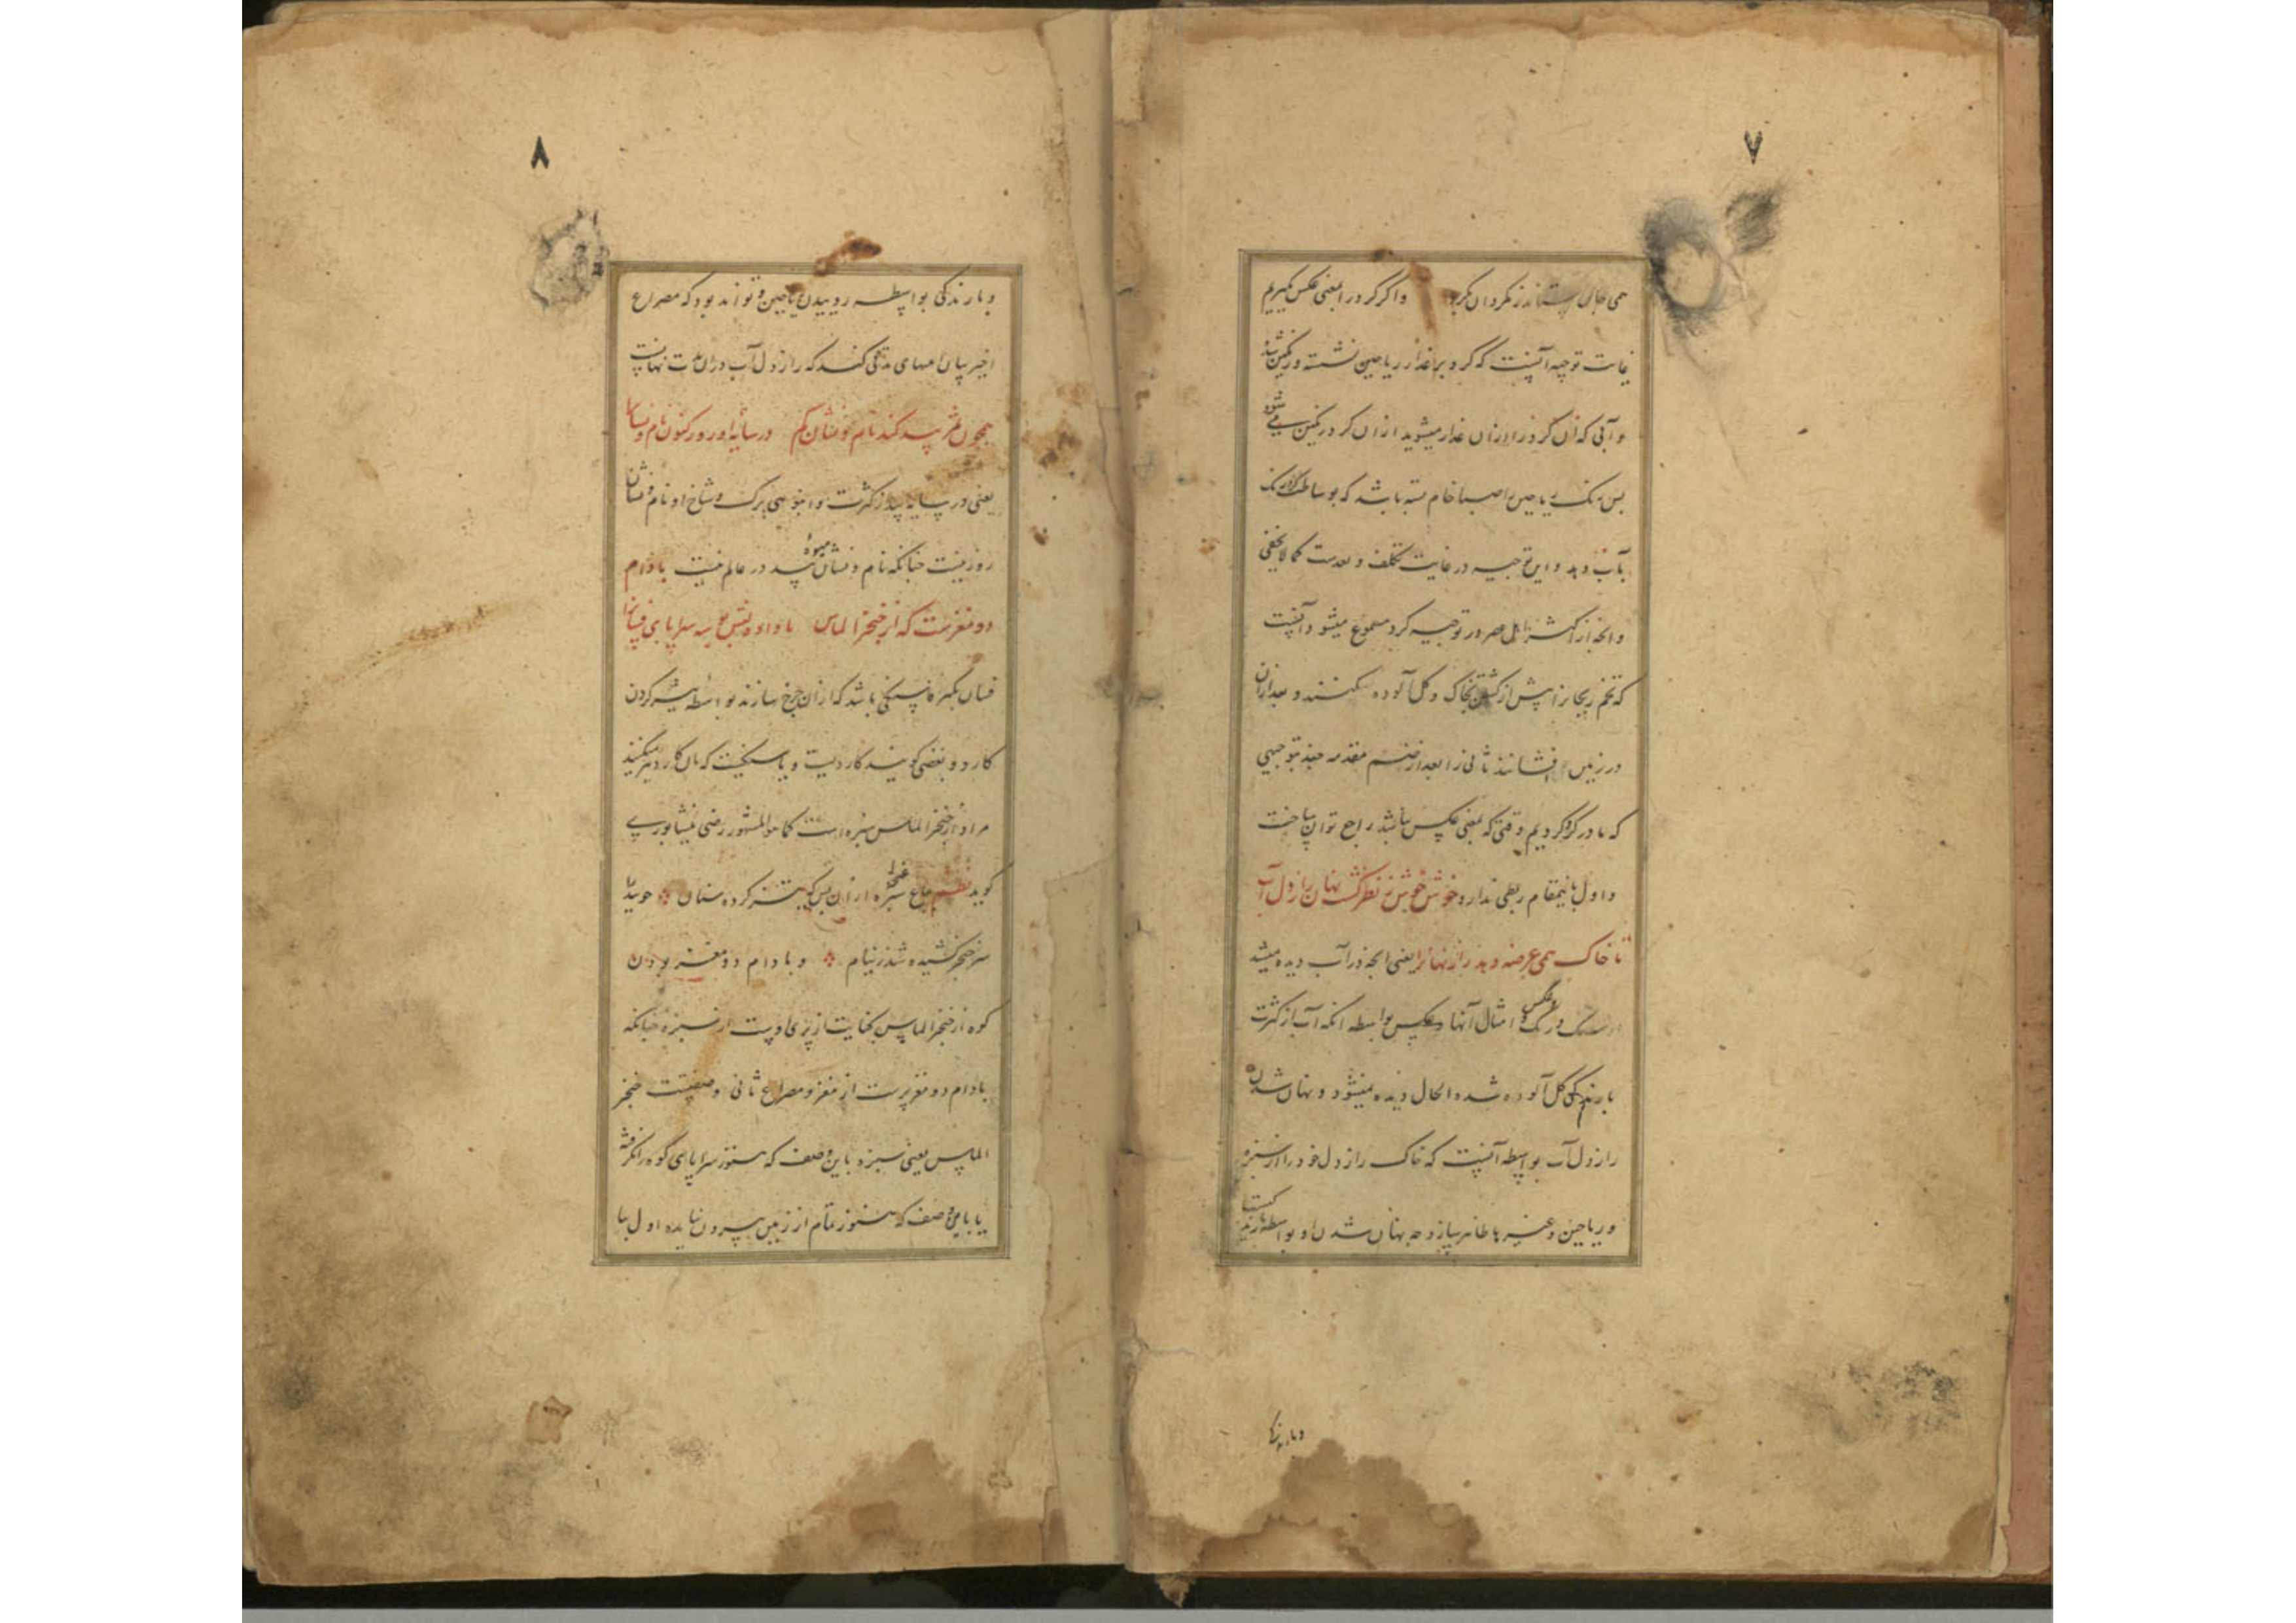 ۷
همی حال بستاند ز نکردان نکرد واکر کرد را بمعنی عکس کیریم
غایت توجیه آنست که کرد بر عذار ریاحین نشسته و رنکین شد
و آبی که آن کرد را از آن عذار میشوید از آن کرد رنکین می شود
پس رنک ریاحین صباغ خام بسته باشد که بوساطت کرد رنک
بآب دهد و این توجیه در غایت تکلف و بعدست کما لا یخفی
و انچه از اکثر اهل عصر در توجیه کرد مسموع میشود آنست
که تخم ریحانرا پیش از کشتن بخاک و کل آلوده میکنند و بعد از آن
در زمین افشانند ثانی را بعد از ضم مقدمه چند بتوجیهی
که ما در کرد کردیم وقتی که بمعنی عکس باشد راجع توان ساخت
و اول باینمقام ربطی ندارد خوش خوش ز نظر کشت نهان راز دل آب
تا خاک همی عرضه دهد راز نهانرا یعنی انچه در آب دیده میشد
از سنک و ریک و عکس و امثال آنها بواسطه انکه آب از کثرت
بارندکی کل آلوده شده الحال دیده نمیشود و نهان شدن
راز دل آب بواسطه آنست که خاک راز دل خود را از سبزه
و ریاحین و غیرها ظاهر سازد وجه نهان شدن او بواسطه بارندکیست
و بارندکی
۸
و بارندکی بواسطه روییدن ریاحین و تواند بود که مصراع
اخیر بیان انتهای مدتی کند که راز دل آب در آن مدت نهانست
همچون ثمر بید کند نام و نشان کم در سایه او روز کنون نام و نشانرا
یعنی در سایه بید از کثرت و انبوهی برک و شاخ او نام و نشان
روز نیست چنانکه نام و نشان میوه بید در عالم نیست بادام
دو مغزست که از خنجر الماس ناداده لبش بوسه سراپای فسانرا
فسان بکسر فا سنکی باشد که از آن چرخ سازند بواسطه تیز کردن
کارد و بعضی کویند کاردیست و یا سنکیست که بآن کارد تیز میکنند
مراد از خنجر الماس سبزه است کما هو المشهور رضی نیشابوری
کوید نظم بباغ سبزه از آن پس که تیز کرده سنان چو بید
سر خنجر کشیده شد ز نیام و بادام دو مغز بودن
کوه از خنجر الماس کنایت از پری اوست از سبزه چنانکه
بادام دو مغز پرست از مغز و مصراع ثانی وصفیست خنجر
الماس یعنی سبزه باین وصف که هنوز سراپای کوه را نکرفته
یا باین وصف که هنوز تمام از زمین بیرون نیامده اول بنا